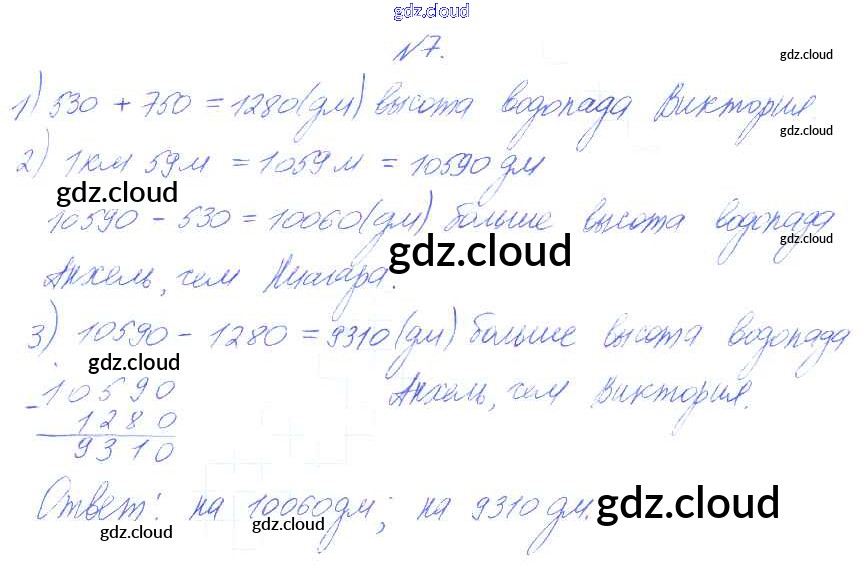 gdz.cloud
№7.
gdz.cloud
1) 530 + 750 = 1280(дм) высота водопада Виктория.
gdz.cloud
2) 1км 59м = 1059м = 10590дм
gdz.cloud
10590 - 530 = 10060(дм) больше высота водопада
gdz.cloud
gdz.cloud
Анхель, чем Ниагара.
3) 10590 - 1280 = 9310(дм) больше высота водопада
gdz.cloud
gdz.cloud
Анхель, чем Виктория.
- 10590
1280
9310
Ответ: на 10060дм; на 9310дм.
gdz.cloud
gdz.cloud
gdz.cloud